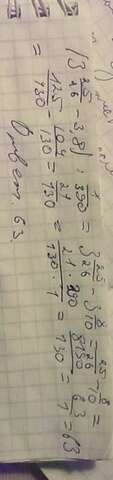 (3 25/26 - 3,8) : 1/390 = 3 25/26 - 3 8/10 = 25/26 - 8/10 =
= 125/130 - 104/130 = 21/130 = 21 · 390/130 · 1 = 8190/130 = 63/1 = 63
Ответ: 63.